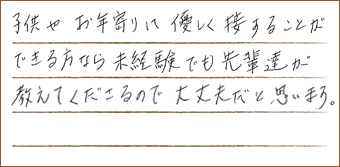 子供や お年寄りに 優しく 接することが
できる方なら 未経験でも 先輩達が
教えてくださるので 大丈夫だと 思います。